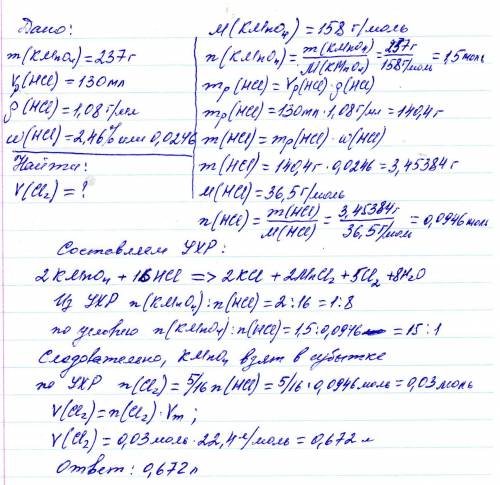 Дано:
m(KMnO4) = 237 г
Vp(HCl) = 130 мл
ρ(HCl) = 1,08 г/мл
ω(HCl) = 2,46% или 0,0246
Найти:
V(Cl2) = ?
M(KMnO4) = 158 г/моль
n(KMnO4) = m(KMnO4)/M(KMnO4) = 237г/158г/моль = 1,5 моль
mp(HCl) = Vp(HCl) · ρ(HCl)
mp(HCl) = 130мл · 1,08г/мл = 140,4г
m(HCl) = mp(HCl) · ω(HCl)
m(HCl) = 140,4г · 0,0246 = 3,45384г
M(HCl) = 36,5г/моль
n(HCl) = m(HCl)/M(HCl) = 3,45384г/36,5г/моль = 0,0946 моль
Составляем УХР:
2KMnO4 + 16HCl => 2KCl + 2MnCl2 + 5Cl2 + 8H2O
Из УХР n(KMnO4) : n(HCl) = 2 : 16 = 1 : 8
по условию n(KMnO4) : n(HCl) = 1,5 : 0,0946 = 15 : 1
Следовательно, KMnO4 взят в субытке
по УХР n(Cl2) = 5/16 n(HCl) = 5/16 · 0,0946 моль = 0,03 моль
V(Cl2) = n(Cl2) · Vm ;
V(Cl2) = 0,03 моль · 22,4 л/моль = 0,672 л
Ответ: 0,672 л